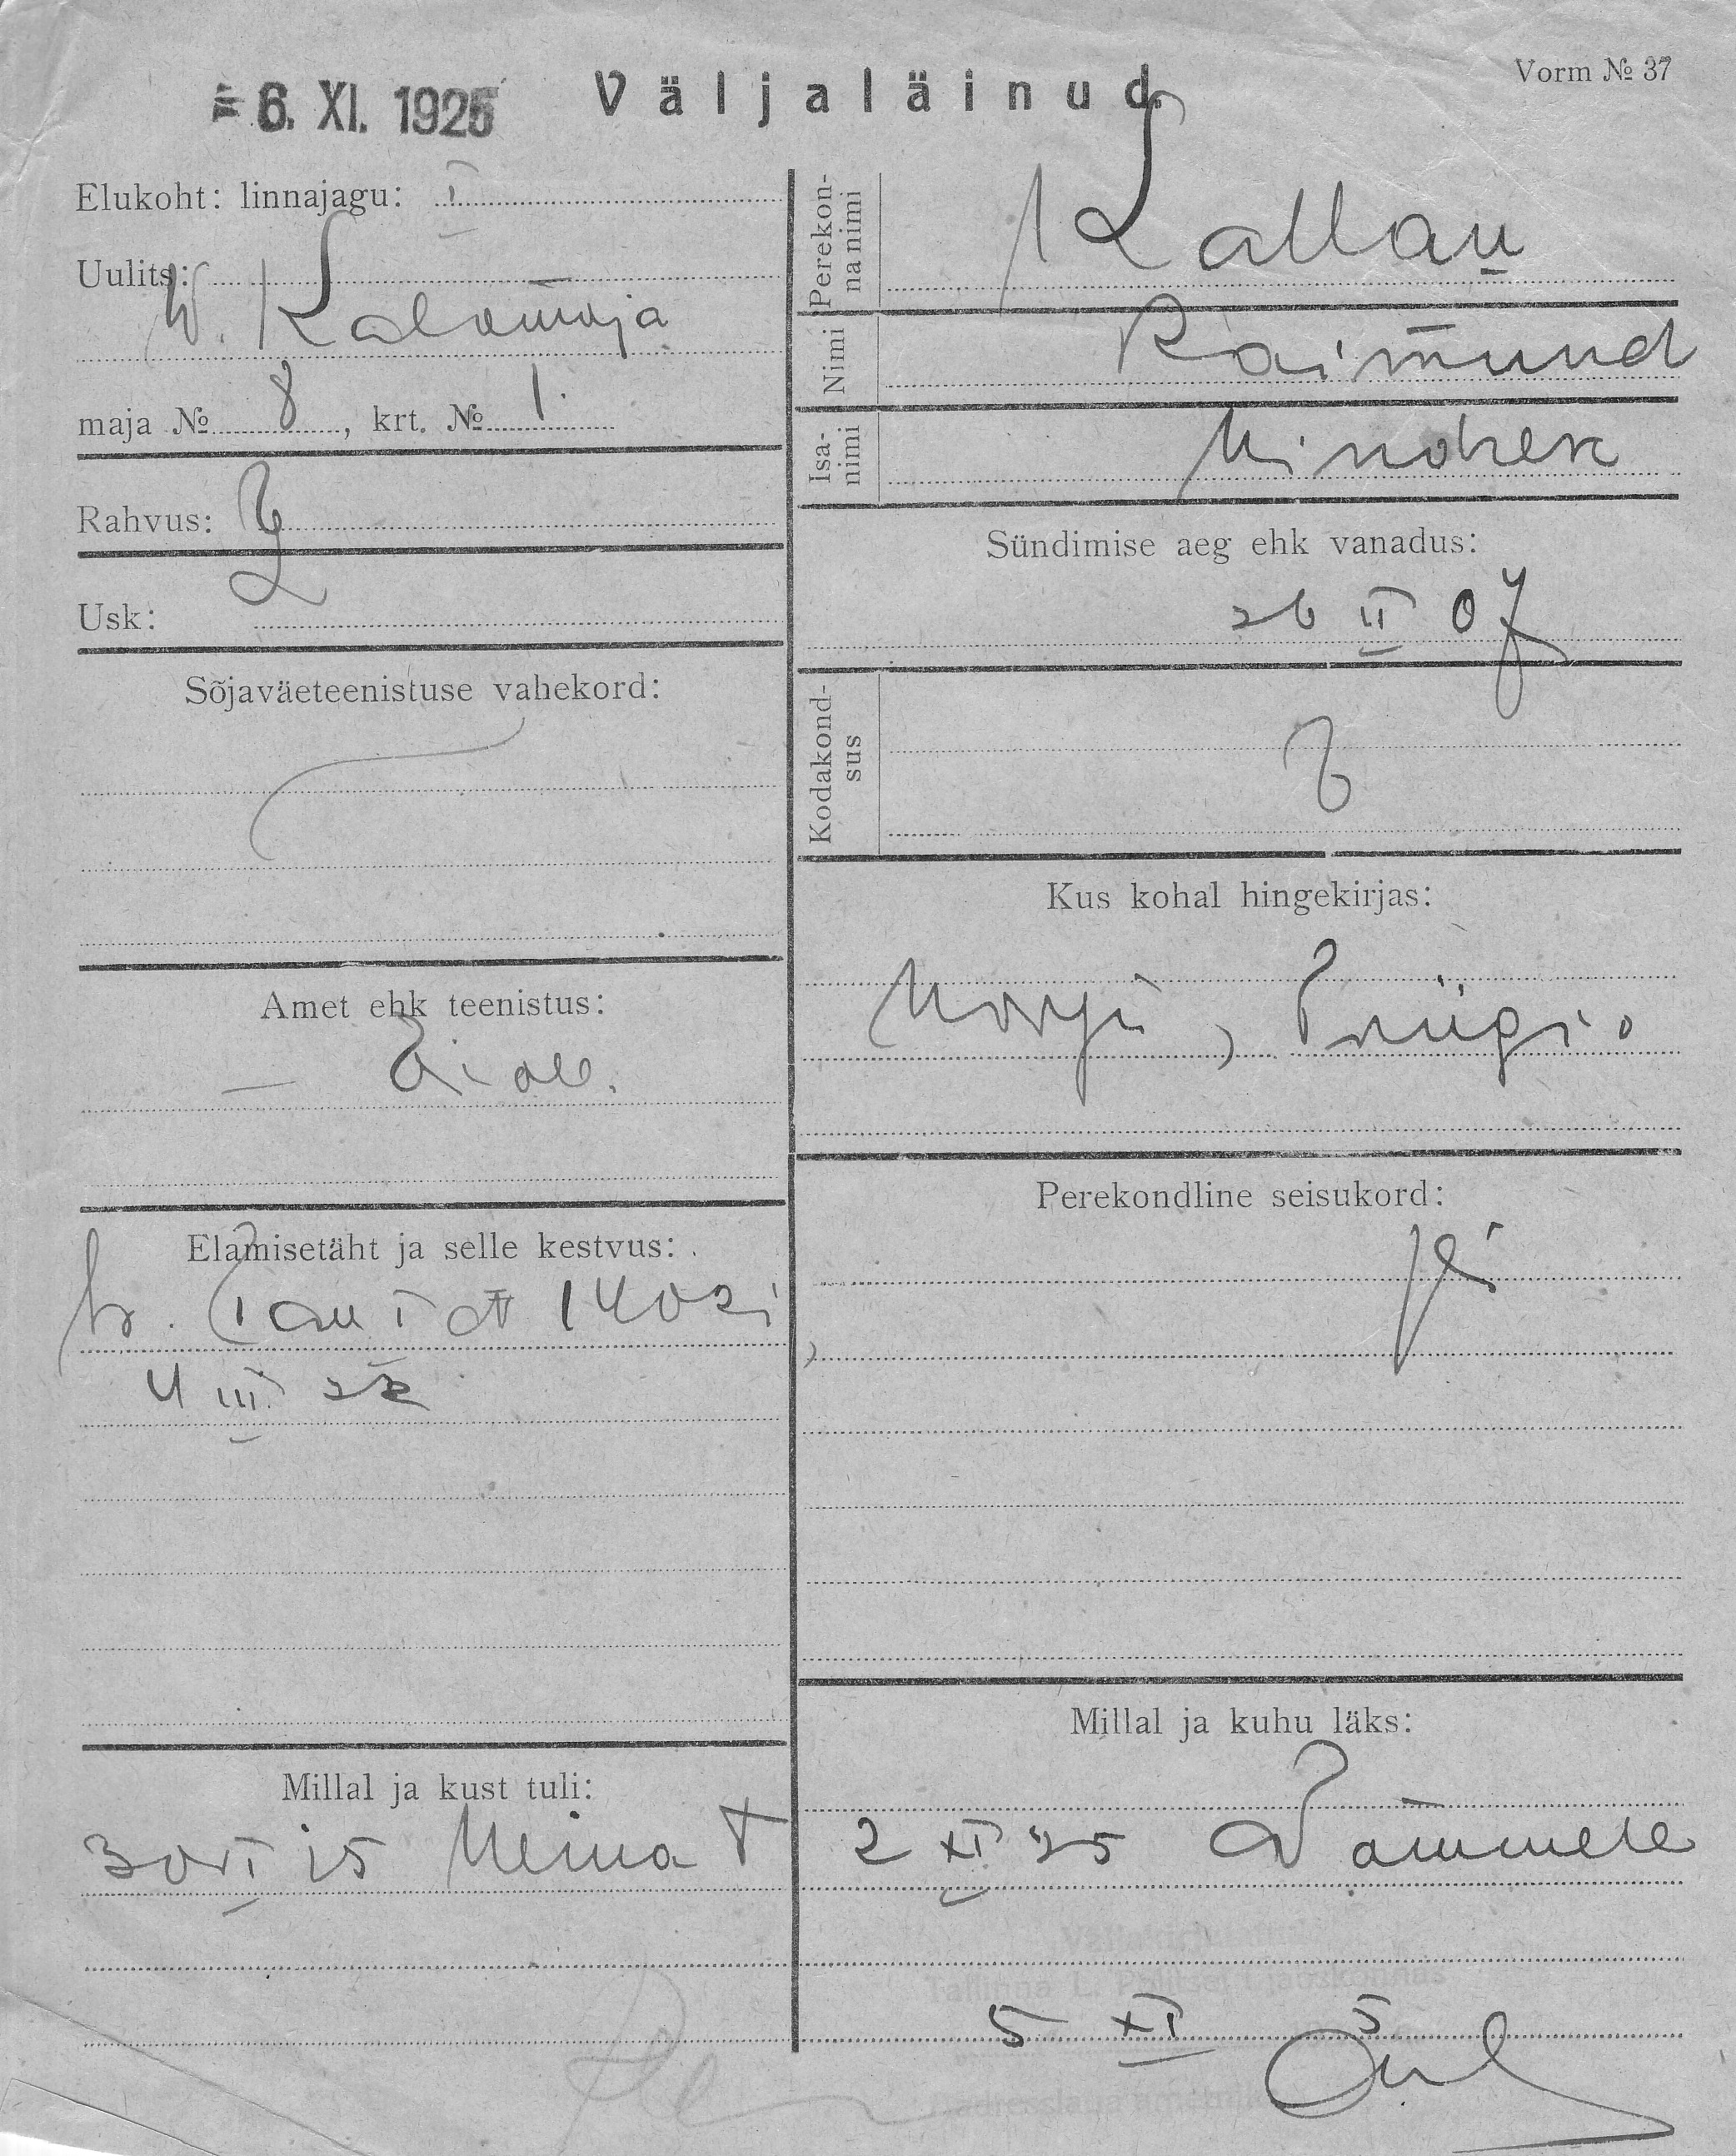 = 6. XI. 1925
Väljaläinud.
Vorm № 37
Elukoht: linnajagu: I
Uulits:
W. Kalamaja
maja № 8, krt. № 1.
Rahvus: E
Usk: L
Sõjaväeteenistuse vahekord:
Amet ehk teenistus:
Elamisetäht ja selle kestvus:
4 III
Millal ja kust tuli:
30 VI 25
Perekonnanimi Kallau
Nimi Raimund
Isanimi Hindrek
Sündimise aeg ehk vanadus:
26 II 07
Kodakondsus E
Kus kohal hingekirjas:
Harju,
Perekondline seisukord:
Millal ja kuhu läks:
2 XI 25 Nõmmele
Tallinna L. Politsei I jaoskonnas
5 XI 5